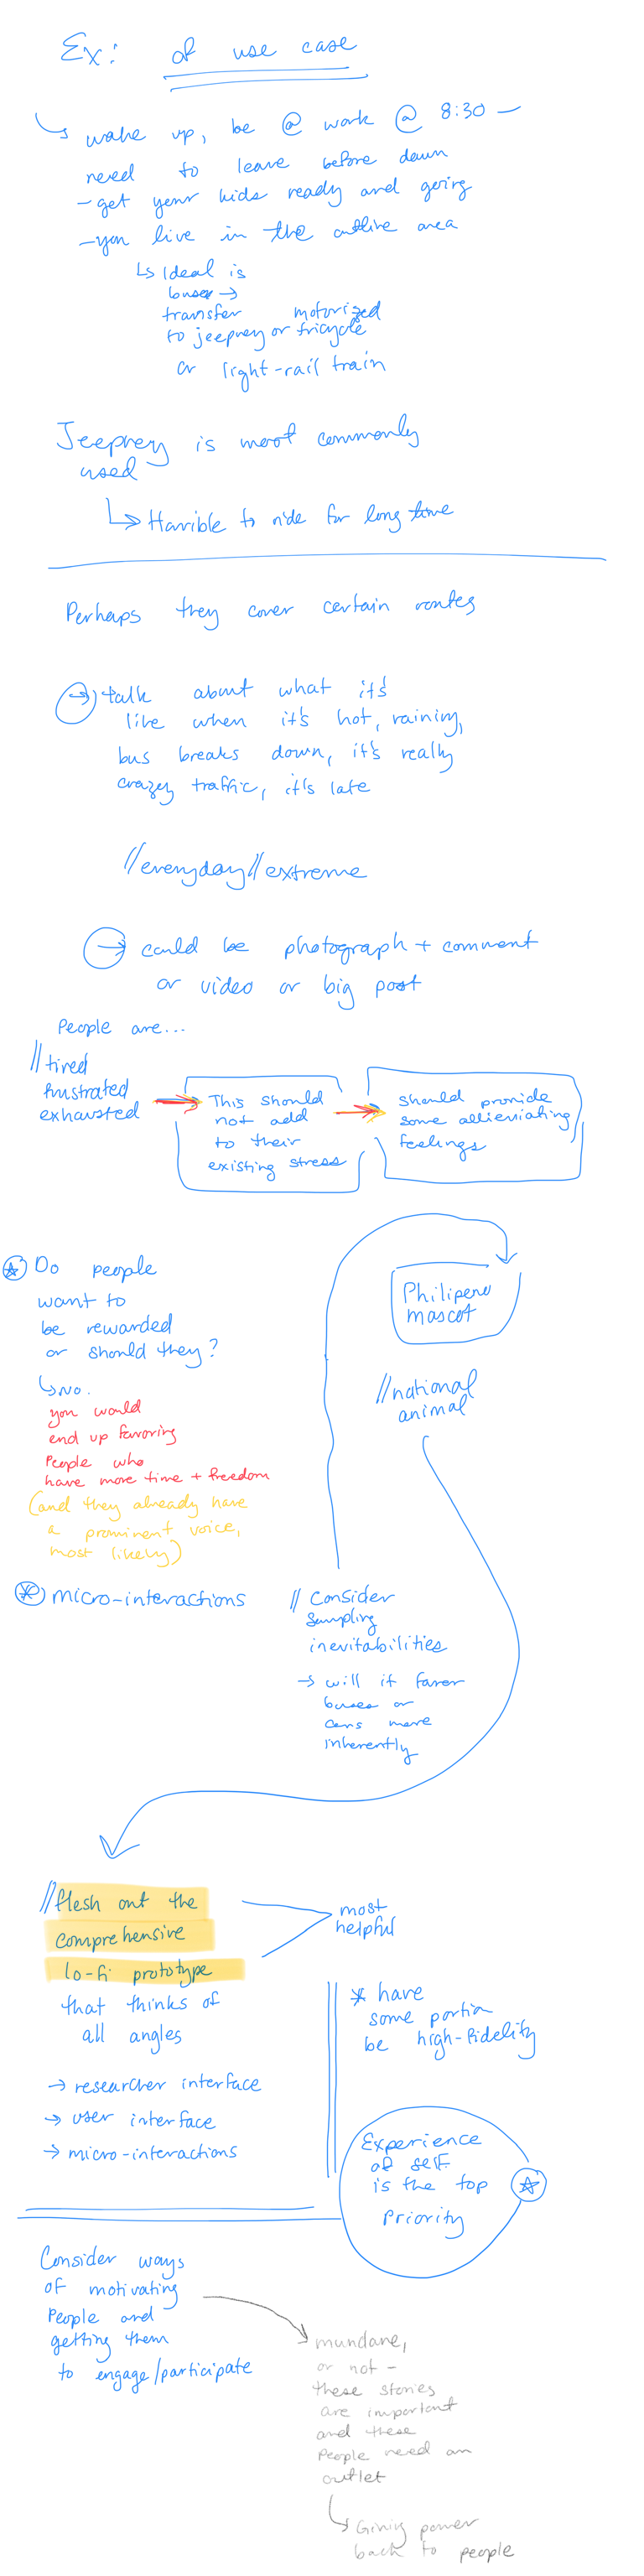 Ex: of use case
↳ wake up, be @ work @ 8:30 –
need to leave before dawn
- get your kids ready and going
- you live in the outlive area
↳ Ideal is
buses →
transfer motorized
to jeepney or tricycle
or light-rail train
Jeepney is most commonly
used
↳ Horrible to ride for long time
Perhaps they cover certain routes
→ talk about what it's
like when it's hot, raining,
bus breaks down, it's really
crazy traffic, it's late
//everyday//extreme
→ could be photograph + comment
or video or big post
People are...
//tired
frustrated
exhausted
This should
not add
to their
existing stress
should provide
some allieviating
feelings
Do people
want to
be rewarded
or should they?
↳ No.
you would
end up favoring
People who
have more time + freedom
(and they already have
a prominent voice,
most likely)
Philipeno
mascot
//national
animal
micro-interactions
// Consider
sampling
inevitabilities
→ will it favor
buses or
cars more
inherently
//flesh out the
comprehensive
lo-fi prototype
that thinks of
all angles
most
helpful
→ researcher interface
→ user interface
→ micro-interactions
* have
some portion
be high-fidelity
Experience
of self
is the top
Priority
Consider ways
of motivating
People and
getting them
to engage/participate
mundane,
or not –
these stories
are important
and these
People need an
outlet
↳ Giving power
back to people